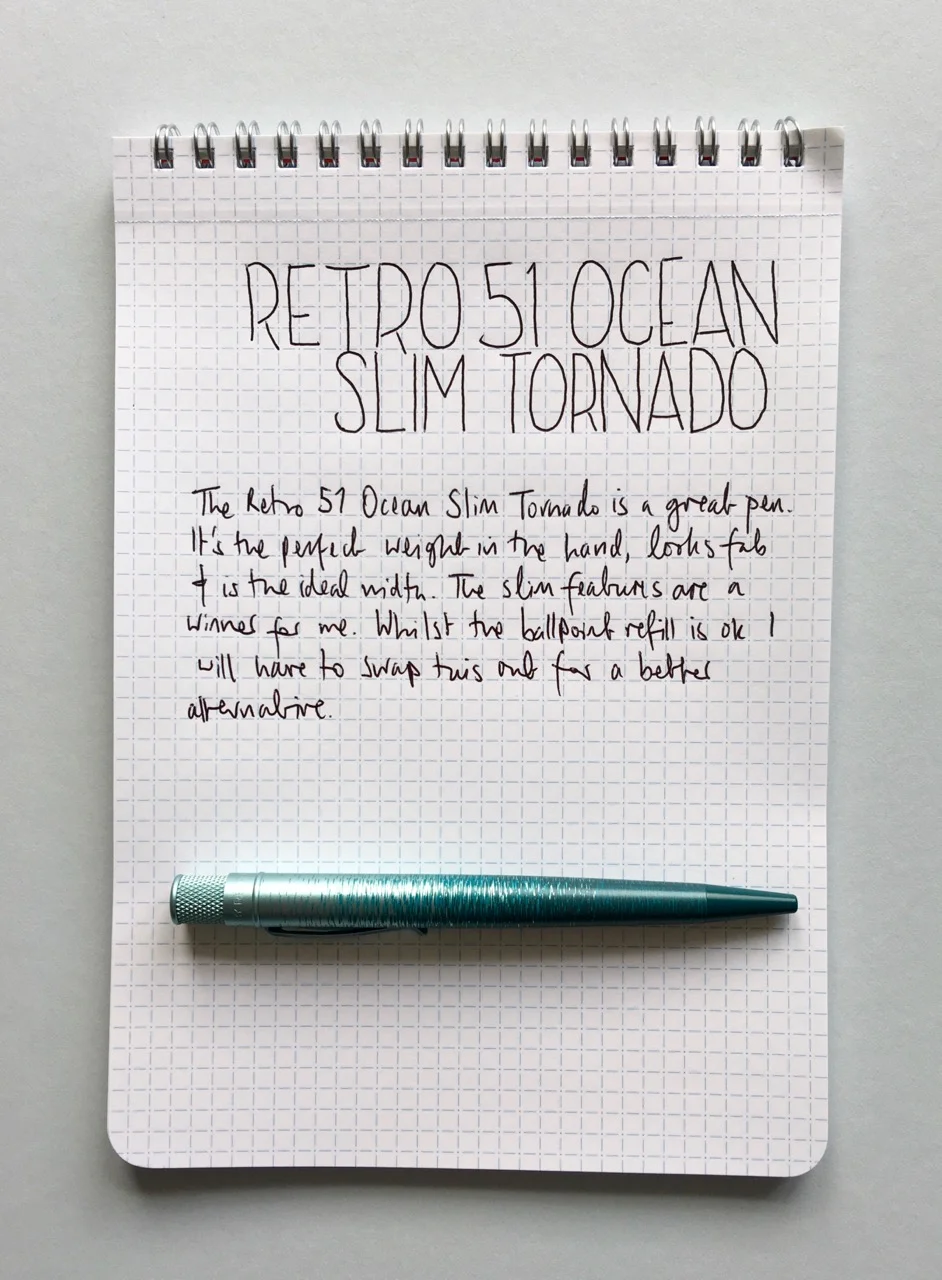 RETRO 51 OCEAN
SLIM TORNADO
The Retro 51 Ocean Slim Tornado is a great pen.
It's the perfect weight in the hand, looks fab
& is the ideal width. The slim features are a
winner for me. Whilst the ballpoint refill is ok I
will have to swap this out for a better
alternative.